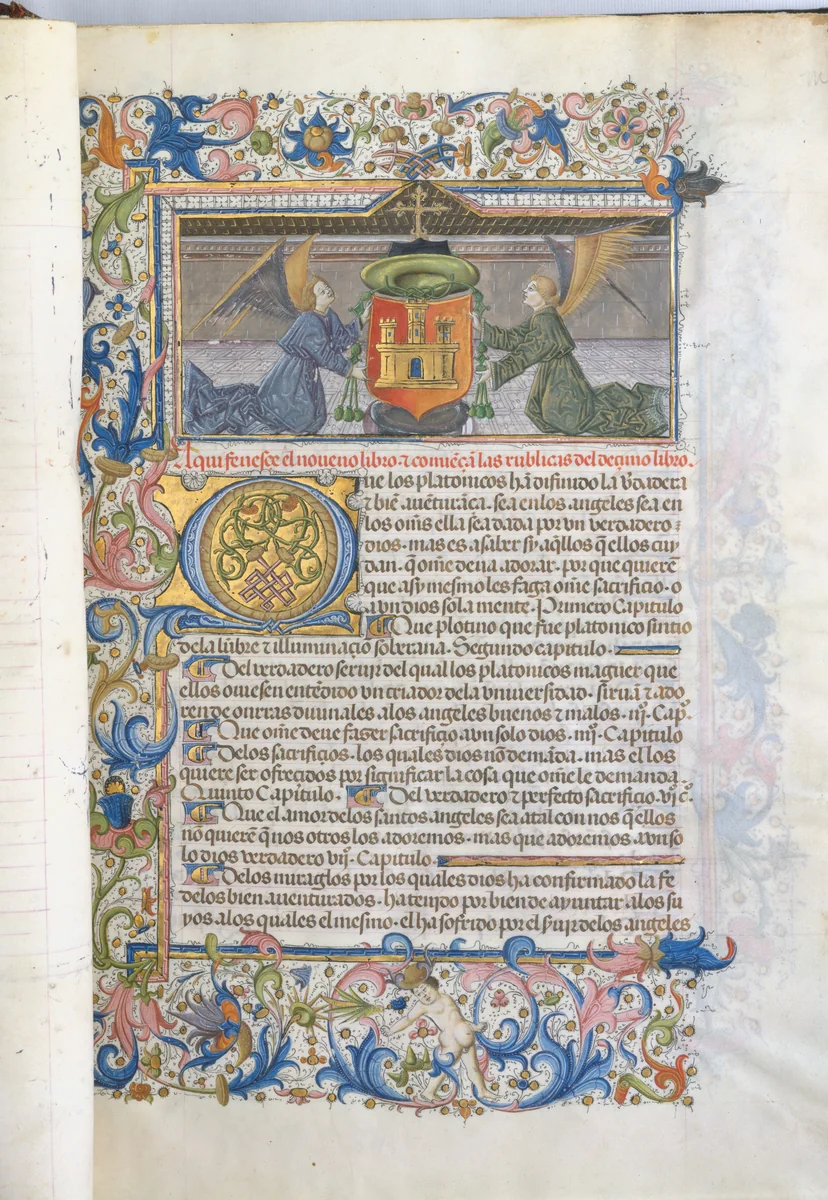 Aqui fenesçe el noueno libro ⁊ comiẽçã las rublicas del deçimo libro.
Que los platonicos hã difinido la ṽdadera
⁊ biẽ auẽturãça. sea en los angeles sea en
los om̃s ella sea dada por vn verdadero
dios. mas es a saber sy aq̃llos q̃ ellos cuy
dan. q̃ om̃e deua adorar. por que quierẽ
que asy mesmo les faga om̃e sacrificio. o
a vn dios sola mente. Primero Capitulo
Que plotino que fue platonico sintio
de la lũbre ⁊ illuminaçiõ soberana. Segundo capitulo.
Del verdadero seruir del qual los platonicos maguer que
ellos ouiesen entẽdido vn criador de la vniuersidad. siruiã ⁊ ado
ren de onrras diuinales a los angeles buenos ⁊ malos. iijº. Capº.
Que om̃e deue fazer sacrifiçio a vn solo dios. iiijº. Capitulo
De los sacrifiçios. los quales dios nõ demãda. mas el los
quiere ser ofrecidos por significar la cosa que om̃e le demanda.
Quinto Capitulo. Del verdadero ⁊ perfecto sacrifiçio. vjº cº.
Que el amor de los santos angeles sea atal con nos q̃ ellos
nõ quierẽ q̃ nos otros los adoremos. mas que adoremos a vn so
lo dios verdadero vijº. Capitulo.
De los miraglos por los quales dios ha confirmado la fe
de los bien auenturados. ha tenido por bien de ayuntar. a los su
yos a los quales el mesmo. el ha sofrido por el s̃uir de los angeles